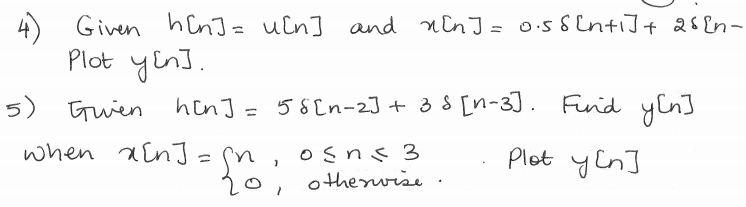 4) Given h[n] = u[n] and x[n] = 0.5 δ[n+1] + 2δ[n-
Plot y[n].
5) Given h[n] = 5δ[n-2] + 3 δ [n-3]. Find y[n]
when x[n] = { n , 0 ≤ n ≤ 3 . Plot y[n]
0 , otherwise .